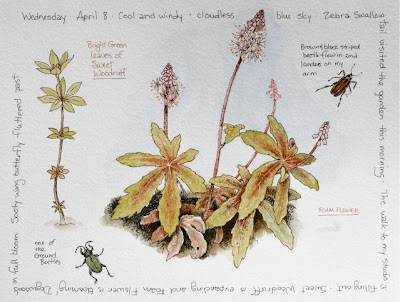 Wednesday April 8 : Cool and windy - cloudless blue sky Zebra Swallow
tail visited the garden this morning. The walk to my studio
is filling out - Sweet Woodruff is expanding and Foam Flower is blooming! Dogwood
in full bloom Sooty wing butterfly fluttered past
Bright Green
leaves of
Sweet
Woodruff
Brown, black striped
beetle flew in and
landed on my
arm
FOAM FLOWER
one of
the
Ground
Beetles